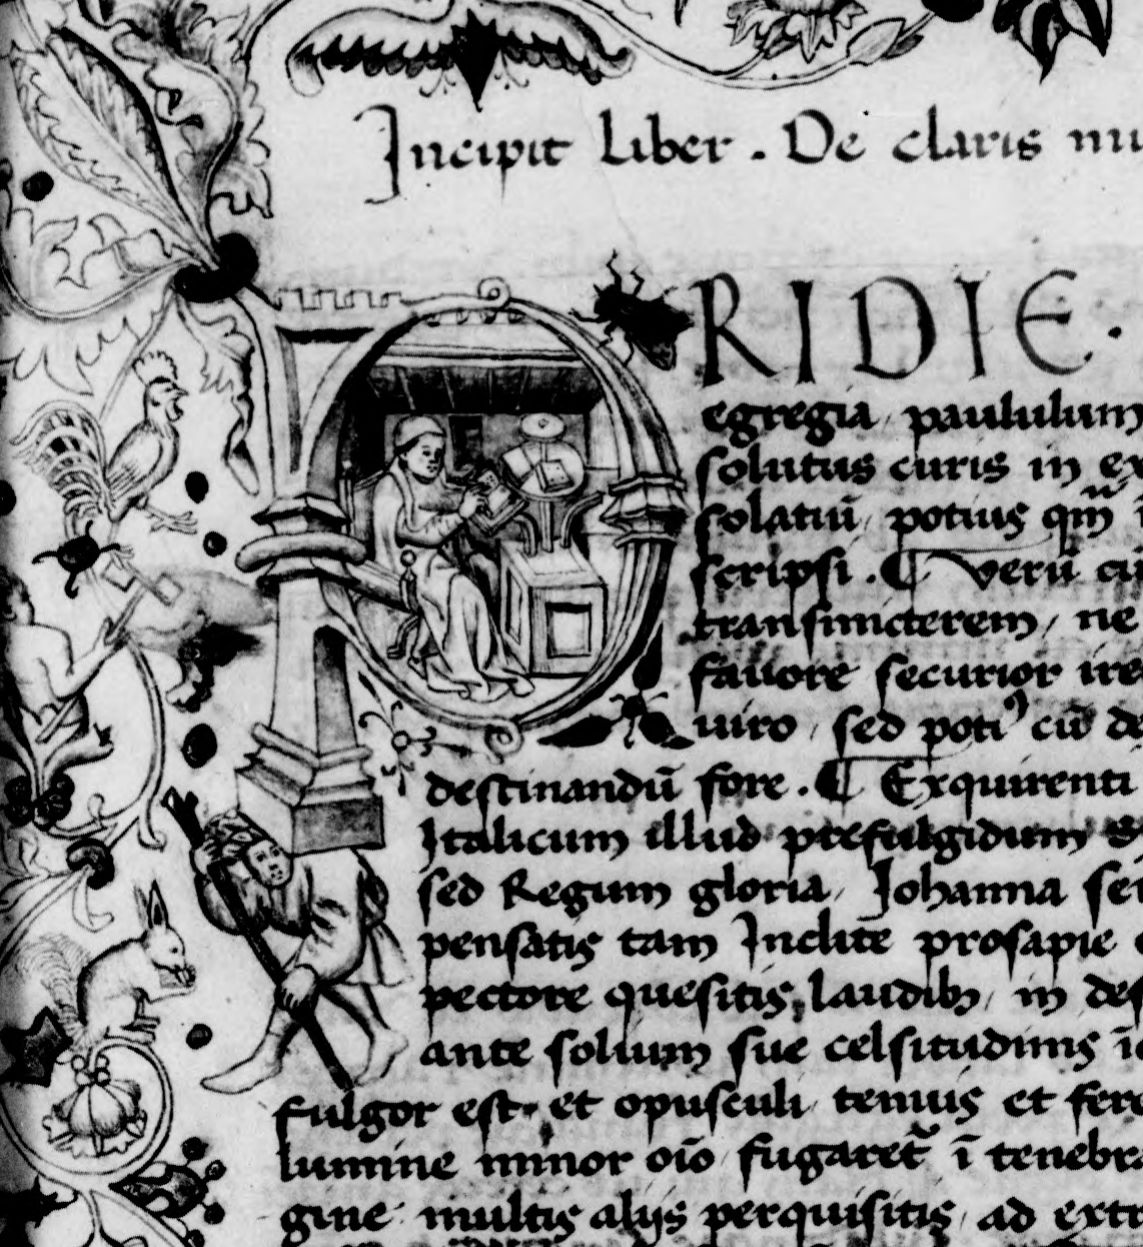 Incipit Liber . De claris mu
PRIDIE .
egregia / paululum
solutus curis in ex
solatiū / potius qm̄
scripsi . ¶ Verū cū
transmicterem / ne
fauore securior ire
uiro / sed potiꝰ cū de
destinandū fore . ¶ Exquirenti
Italicum illud prefulgidum s
sed Regum gloria / Iohanna ser
pensatis tam Inclite prosapie
pectore quesitis, laudibꝫ / in des
ante solium sue celsitudinis
fulgor est. et opusculi tenuis et fere
lumine minor oīo / fugaret̄ ī tenebra
gine multis alijs perquisitis / ad extr